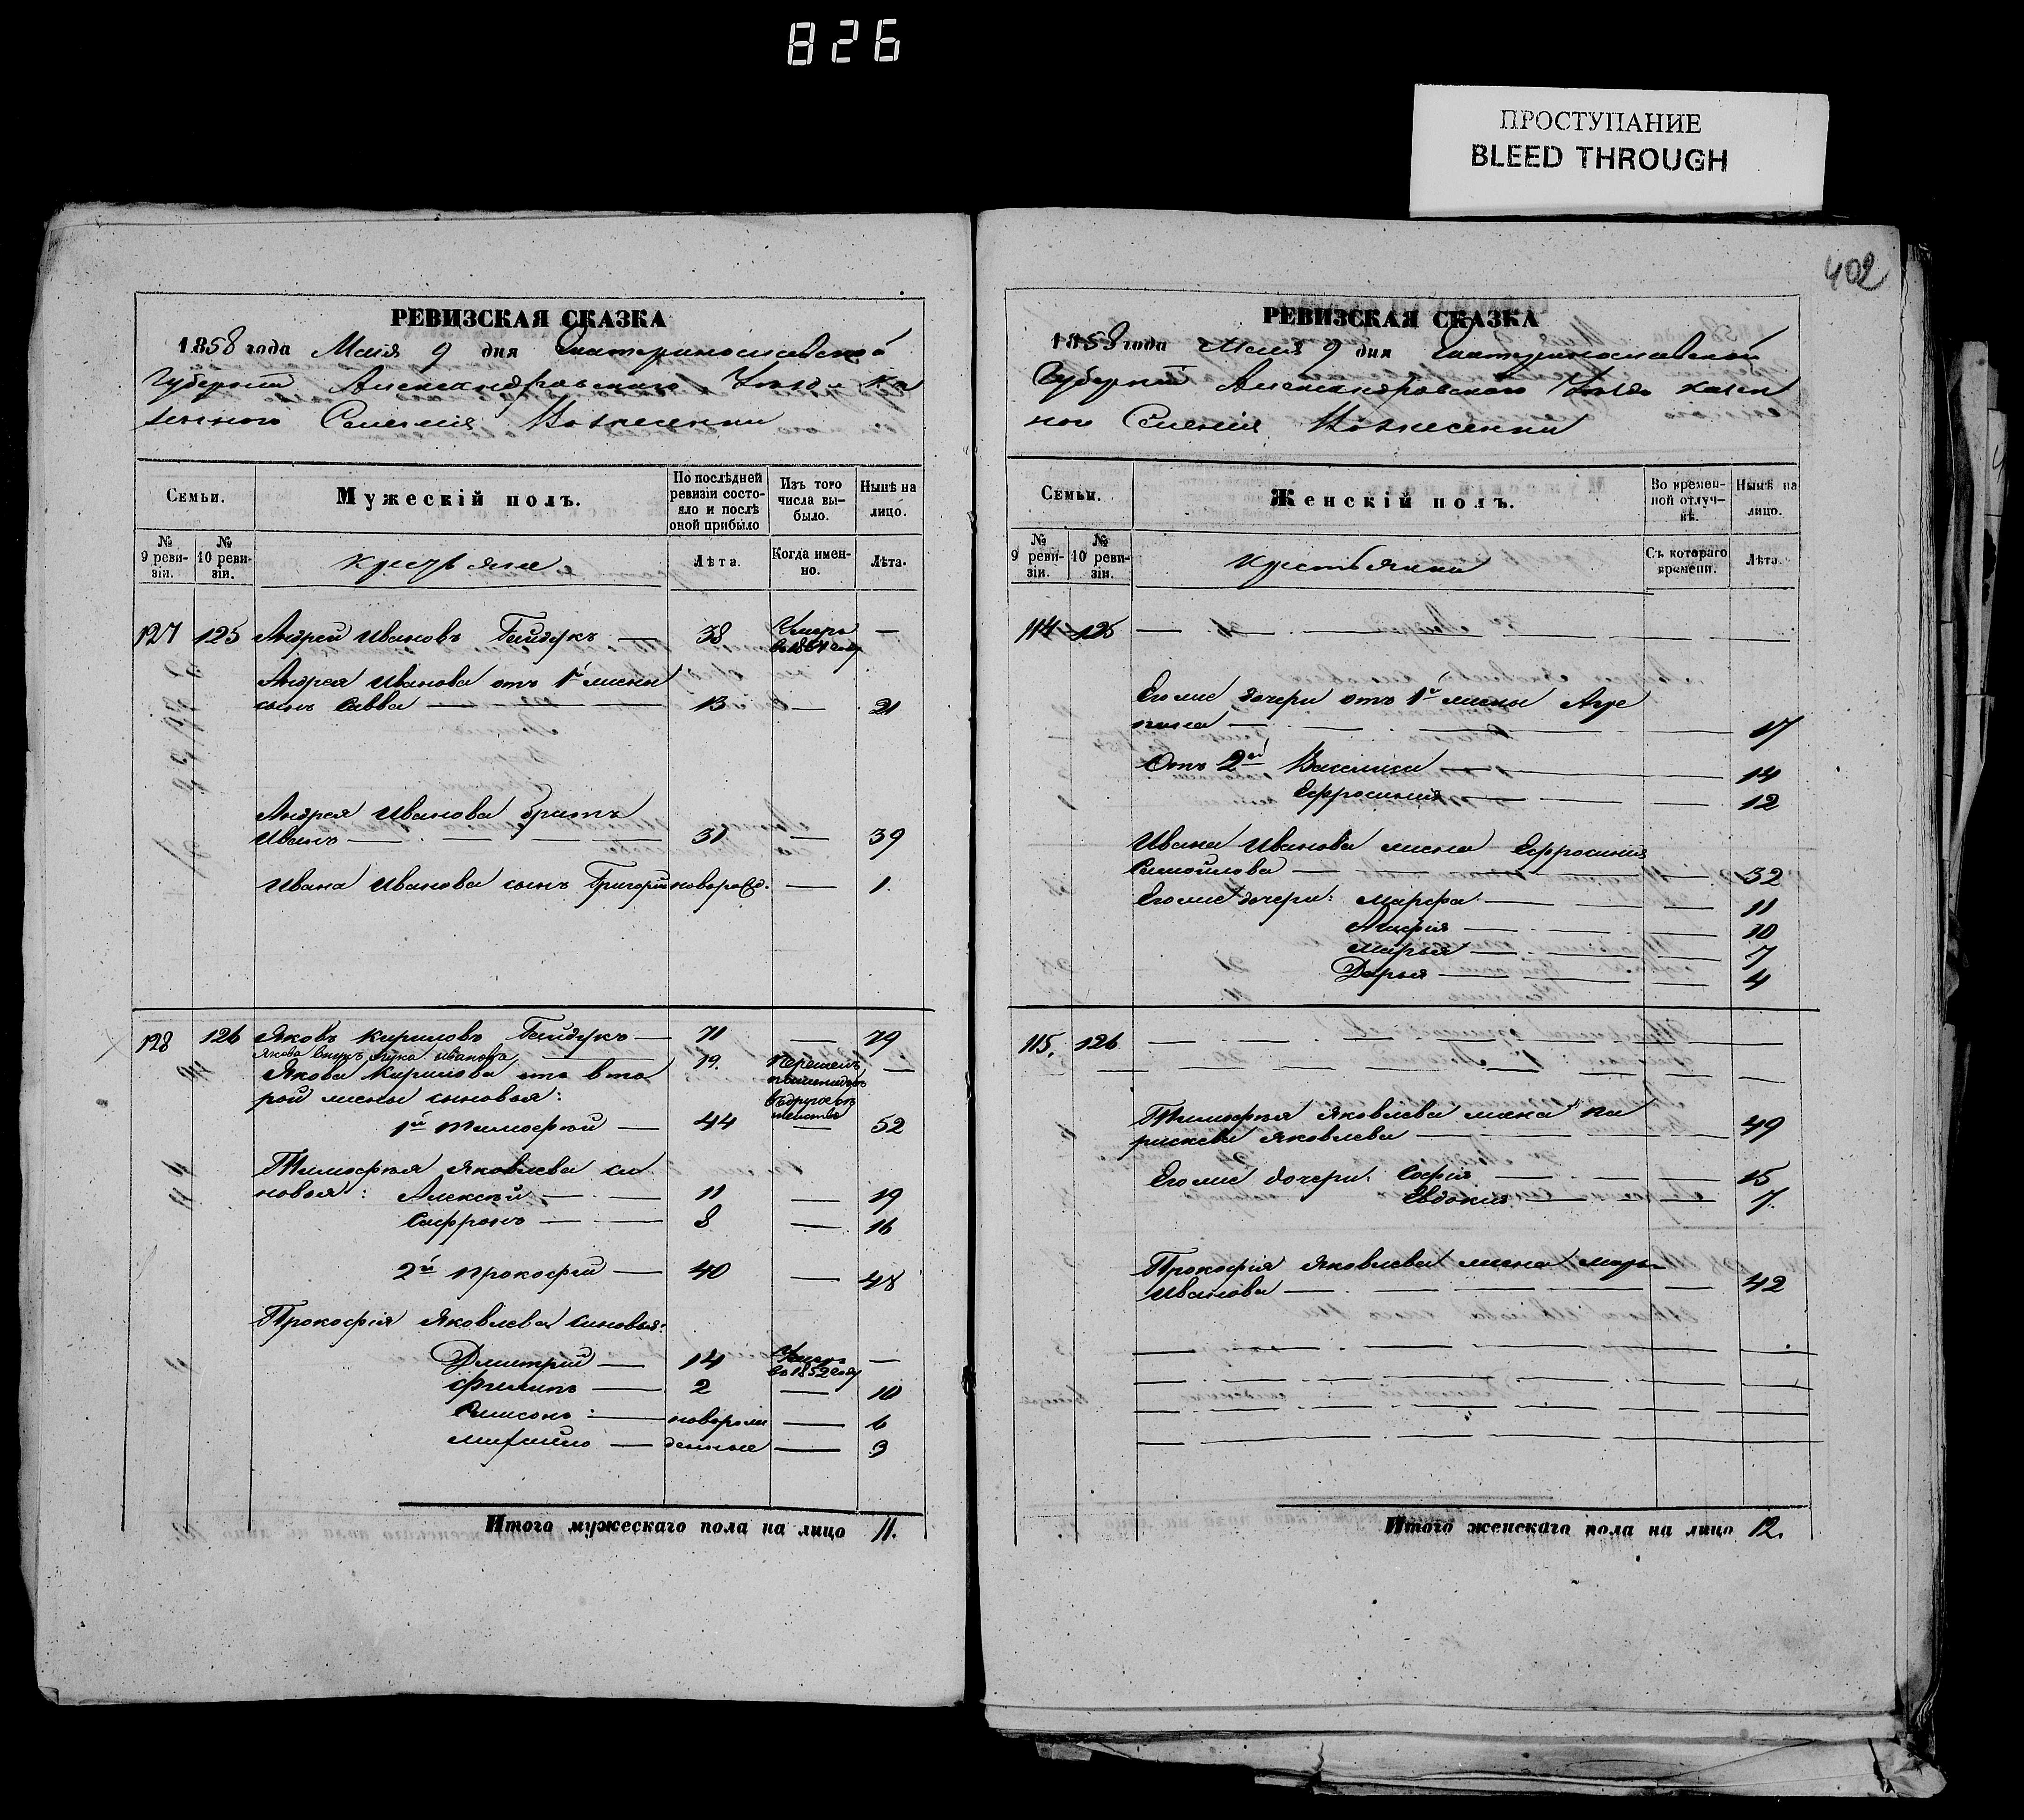 826
ПРОСТУПАНИЕ
BLEED THROUGH
402
РЕВИЗСКАЯ СКАЗКА
1858 года Маія 9 дня Екатеринославской
Губерніи Александровского Уѣзда Ка
зенного Селенія Вознесенки
Семьи.
Мужескій полъ.
По послѣдней ревизіи состояло и послѣ оной прибыло
Изъ того числа выбыло.
Нынѣ на лицо.
№ 9 ревизіи.
№ 10 ревизіи.
Лѣта.
Когда именно.
Лѣта.
127 125 Андрей Ивановъ Гайдукъ — 38 Умеръ въ 1854 году —
Андрея Иванова отъ 1й жены
сынъ Савва — 13 — 21
Андрея Иванова братъ
Иванъ — 31 — 39
Ивана Иванова сынъ Григорій новорожд. — 1.
128 126 Яковъ Кириловъ Гайдукъ — 71 — 79
Якова внукъ Лука Ивановъ 19. —
Якова Кирилова отъ вто
рой жены сыновья:
1й Тимофѣй — 44 — 52
Тимофѣя Яковлева сы
новья: Алексѣй — 11 — 19
Сафронъ — 8 — 16
2й Прокофій — 40 — 48
Прокофія Яковлева сыновья:
Дмитрій — 14 Умеръ въ 1852 году —
Филипъ — 2 — 10
Самсонъ: — новорож — 6
Михайло — денные — 3
Итого мужескаго пола на лицо 11.
РЕВИЗСКАЯ СКАЗКА
1858 года Маія 9 дня Екатеринославской
Губерніи Александровского Уѣзда казен
ного Селенія Вознесенки
Семьи.
Женскій полъ.
Во временной отлучкѣ.
Нынѣ на лицо.
№ 9 ревизіи.
№ 10 ревизіи.
Крестьянки
Съ котораго времени.
Лѣта.
114 125 —
Его же дочери отъ 1й жены Агре
пина — 17
Отъ 2ей Василиса — 14
Ефросинія — 12
Ивана Иванова жена Ефросинія
Самойлова — 32
Его же дочери: Марфа — 11
— 10
Марья — 7
Дарья — 4
115. 126 —
Тимофѣя Яковлева жена Па
раскева Яковлева — 49
Его же дочери: Софія — 15
Евдокія — 7.
Прокофія Яковлева жена Марья
Иванова — 42
Итого женскаго пола на лицо 12.